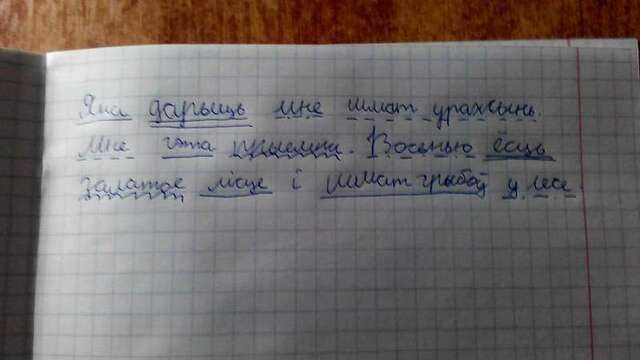 Яна дорыць мне шмат урахсынь.
Мне гэта прыемна. Восенню ёсць
залатое лісце і шмат грыбоў у лесе.